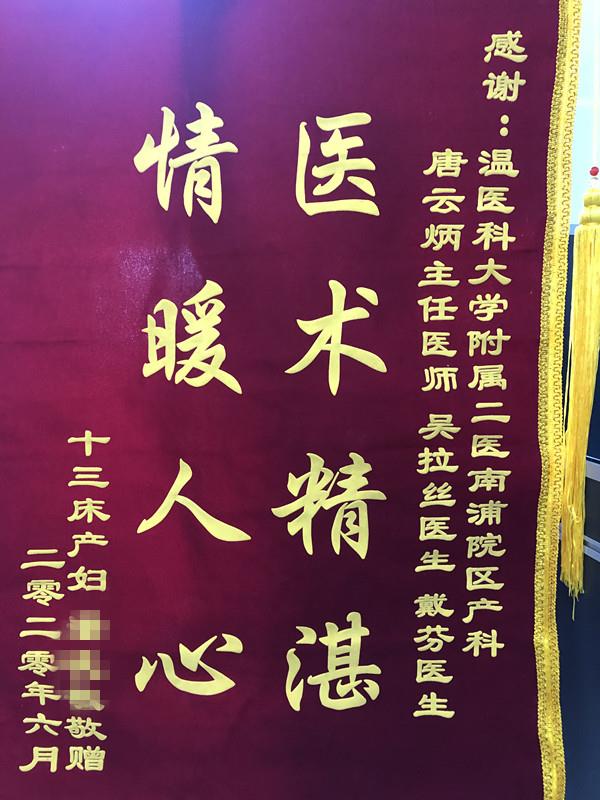 感谢：温医科大学附属二医南浦院区产科
唐云炳主任医师 吴拉丝医生 戴芬医生
医术精湛
情暖人心
十三床产妇 敬赠
二零二零年六月